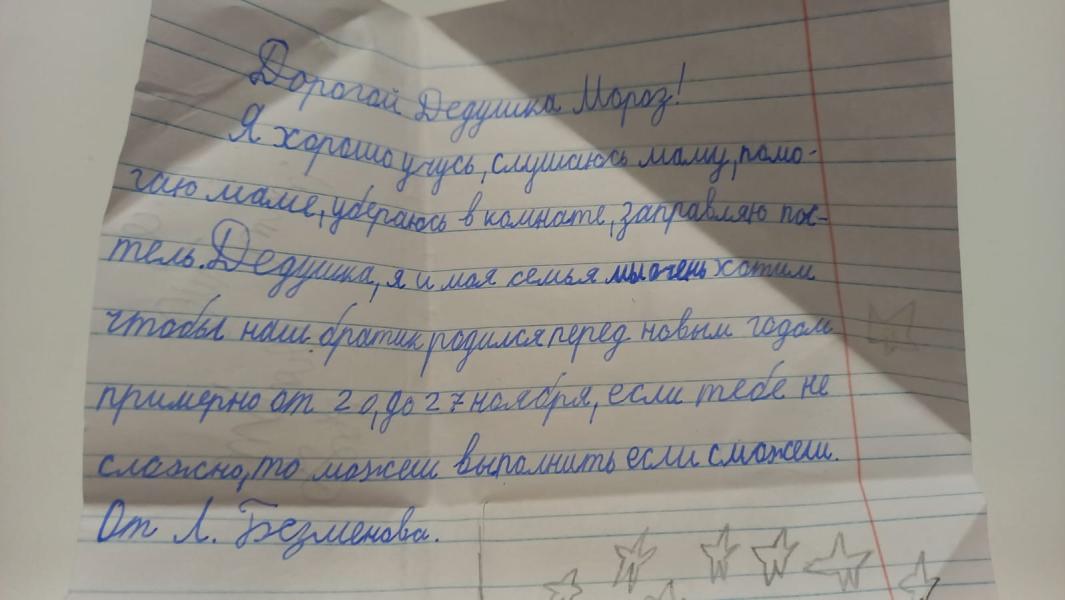 Дорогой Дедушка Мороз!
Я хорошо учусь, слушаюсь маму, помо-
гаю маме, убераюсь в комнате, заправляю пос-
тель. Дедушка, я и моя семья мы очень хотим
чтобы наш братик родился перед новым годом
примерно от 20, до 27 ноября, если тебе не
сложно, то можеш выполнить если сможеш.
От Л. Безменова.